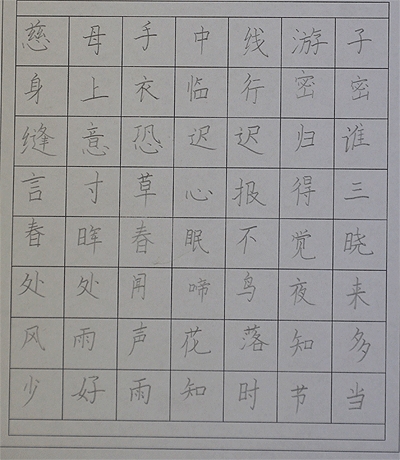 慈母手中线游子
身上衣临行密密
缝意恐迟迟归谁
言寸草心报得三
春晖春眠不觉晓
处处闻啼鸟夜来
风雨声花落知多
少好雨知时节当